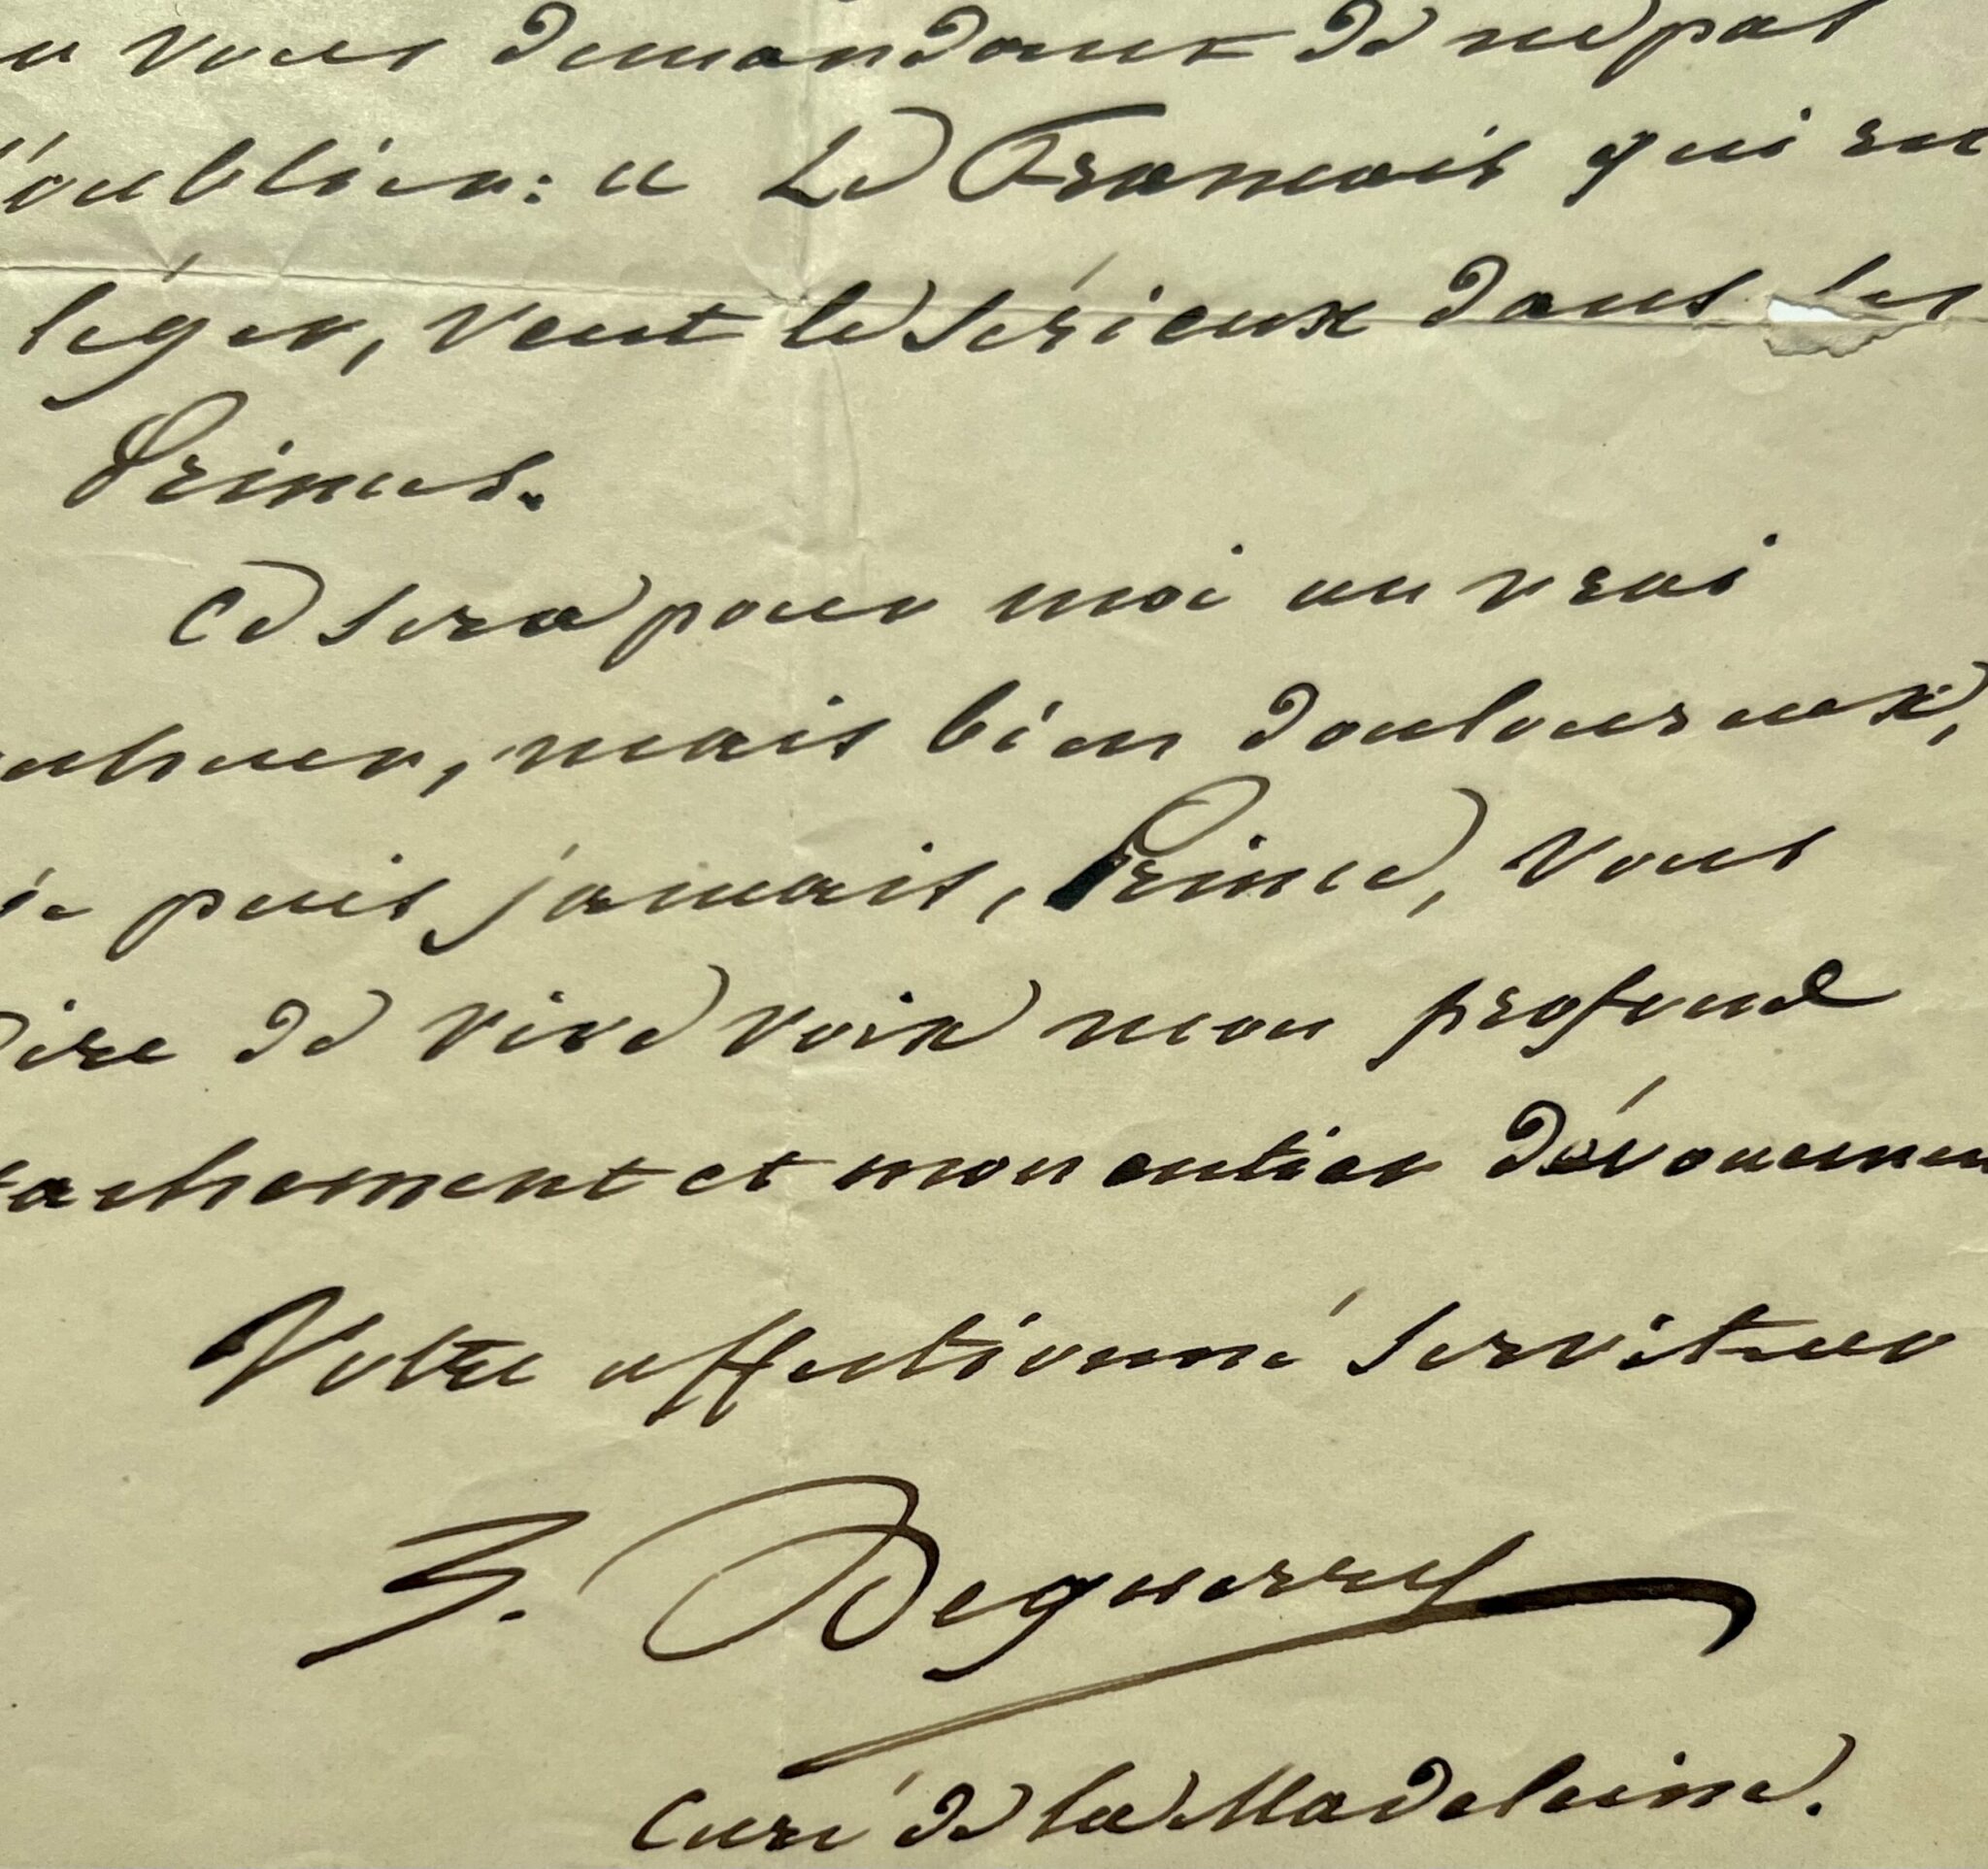 vous demandant de ne pas
l'oublier: " Le Francais qui est
léger, veut le Sérieux dans les
Princes.
Ce sera pour moi un vrai
mais bien douloureux,
je puis jamais, Prince, vous
dire de vive voix mon profond
tachement et mon entier dévouemen
Votre affectionné Serviteur
J. Deguerry
Curé de la Madeleine.